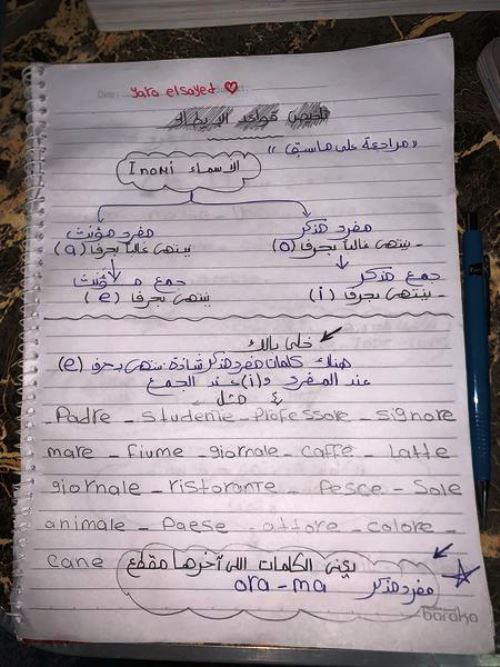 yara elsayed
تلخيص قواعد الإيطالي
«مراجعة على ماسبق»
الاسماء Inomi
مفرد مؤنث
ينتهى غالباً بحرف (a)
مفرد مذكر
- ينتهى غالباً بحرف (o)
جمع مؤنث
ينتهى بحرف (e)
جمع مذكر
- ينتهى بحرف (i)
خلى بالك
هناك كلمات مفرد مذكر شاذة تنتهى بحرف (e)
عند المفرد و(i) عند الجمع
مثل
Padre - studente - Professore - signore
mare - Fiume - giornale - caffe - Latte
giornale - ristorante - Pesce - Sole
animale - Paese - attore - colore -
cane
يعنى الكلمات اللى آخرها مقطع
ora - ma مفرد مذكر
baraka